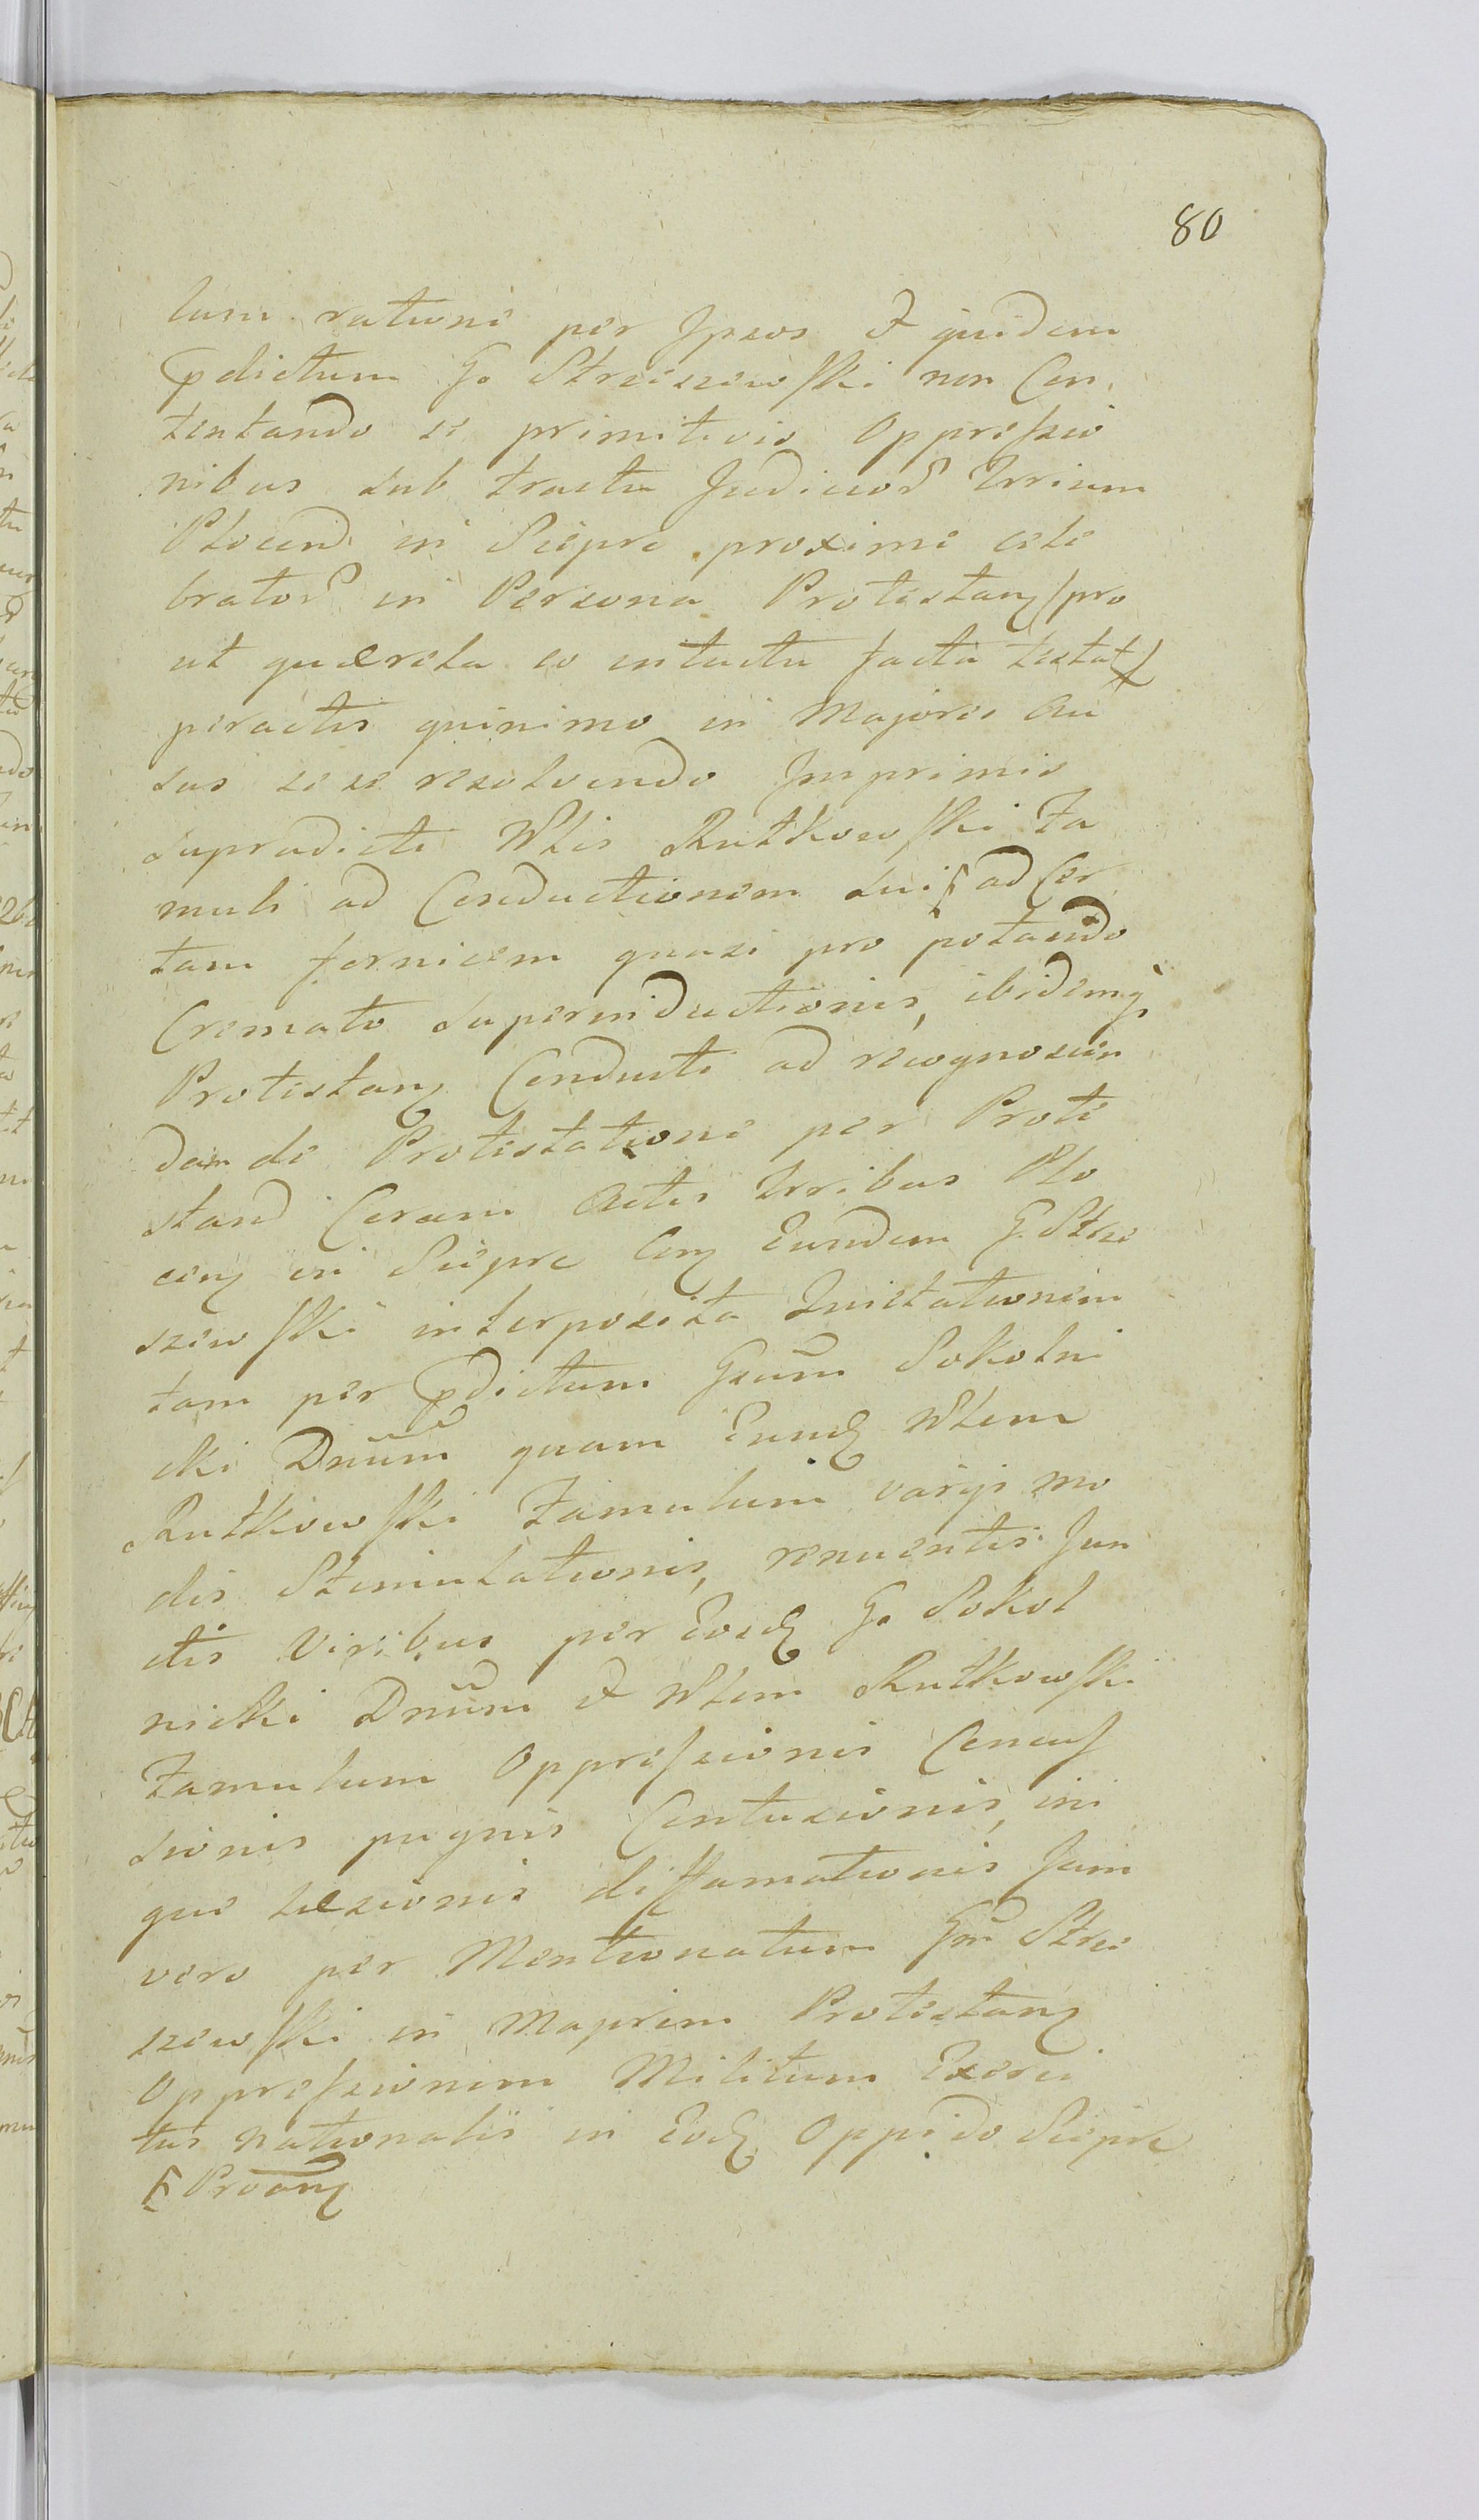 80
lum ratione per Ipsos et quidem
pdictum G. Strzeszewski non Con
tentando se primitivis Oppressio
nibus sub tractu Judicior Trrium
Plocen in Sierpc proxime cele
brator in Persona Protestan (pro
ut quaerela eo intuitu facta testat)
peractis quinimo in Majores Au
sus sese resolvendo Imprimis
supradicti Nblis Rutkowski Fa
muli ad Conductionem sui ad Cer
tam fornicem quasi pro potando
Cremato superinductionis, ibidemq
Protestan Conducti ad recognoscen
dam de Protestatione per Prote
stand Coram Actis Trribus Plo
cen in Sierpc Con Eundem G. Strze
szewski interposita Quietationem
tam per pdictum Gsum Sokolni
cki Dnum quam Eund Nblem
Rutkowski Famulum varijs mo
dis Stimulationis, renuentis Jun
ctis Viribus per Eosd G. Sokol
nicki Dnum et Nblem Rutkowski
Famulum Oppressionis Concus
sionis pugnis Contusionis, ini
que laesionis diffamationis Jam
vero per Mentionatum Gm Strze
szewski in Majorem Protestan
Oppressionem Militum Exerci
tus nationalis in Eod Oppido Sierpc
Proan